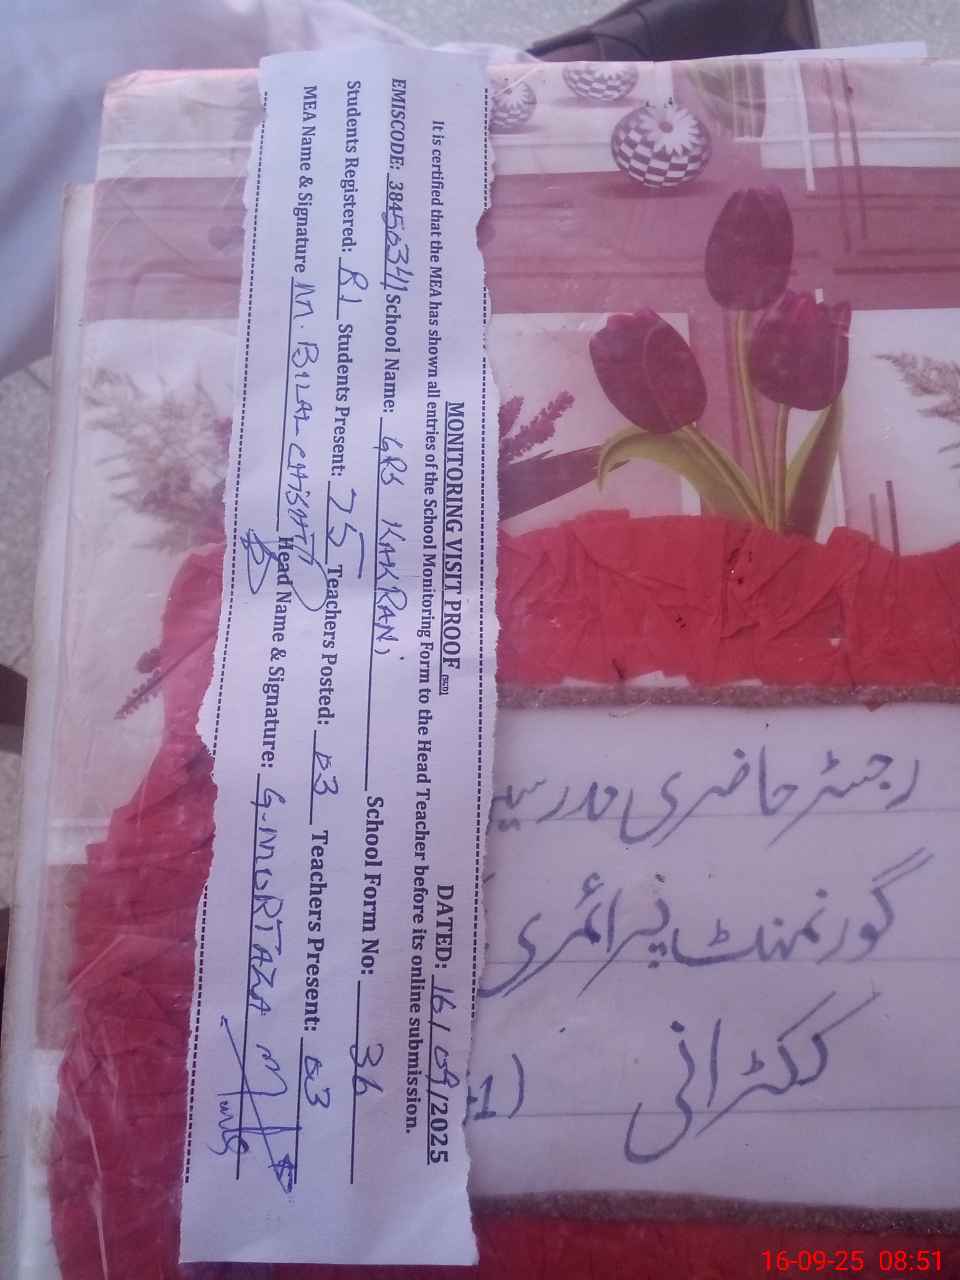 MONITORING VISIT PROOF (SED) DATED: 16/09/2025
It is certified that the MEA has shown all entries of the School Monitoring Form to the Head Teacher before its online submission.
EMISCODE: 38450341 School Name: GPS KAKRANi School Form No: 36
Students Registered: 81 Students Present: 75 Teachers Posted: 03 Teachers Present: 03
MEA Name & Signature M. BILAL CHISHTI Head Name & Signature: G. MURTAZA
رجسٹر حاضری مدرسین
گورنمنٹ پرائمری
ککڑانی
16-09-25 08:51